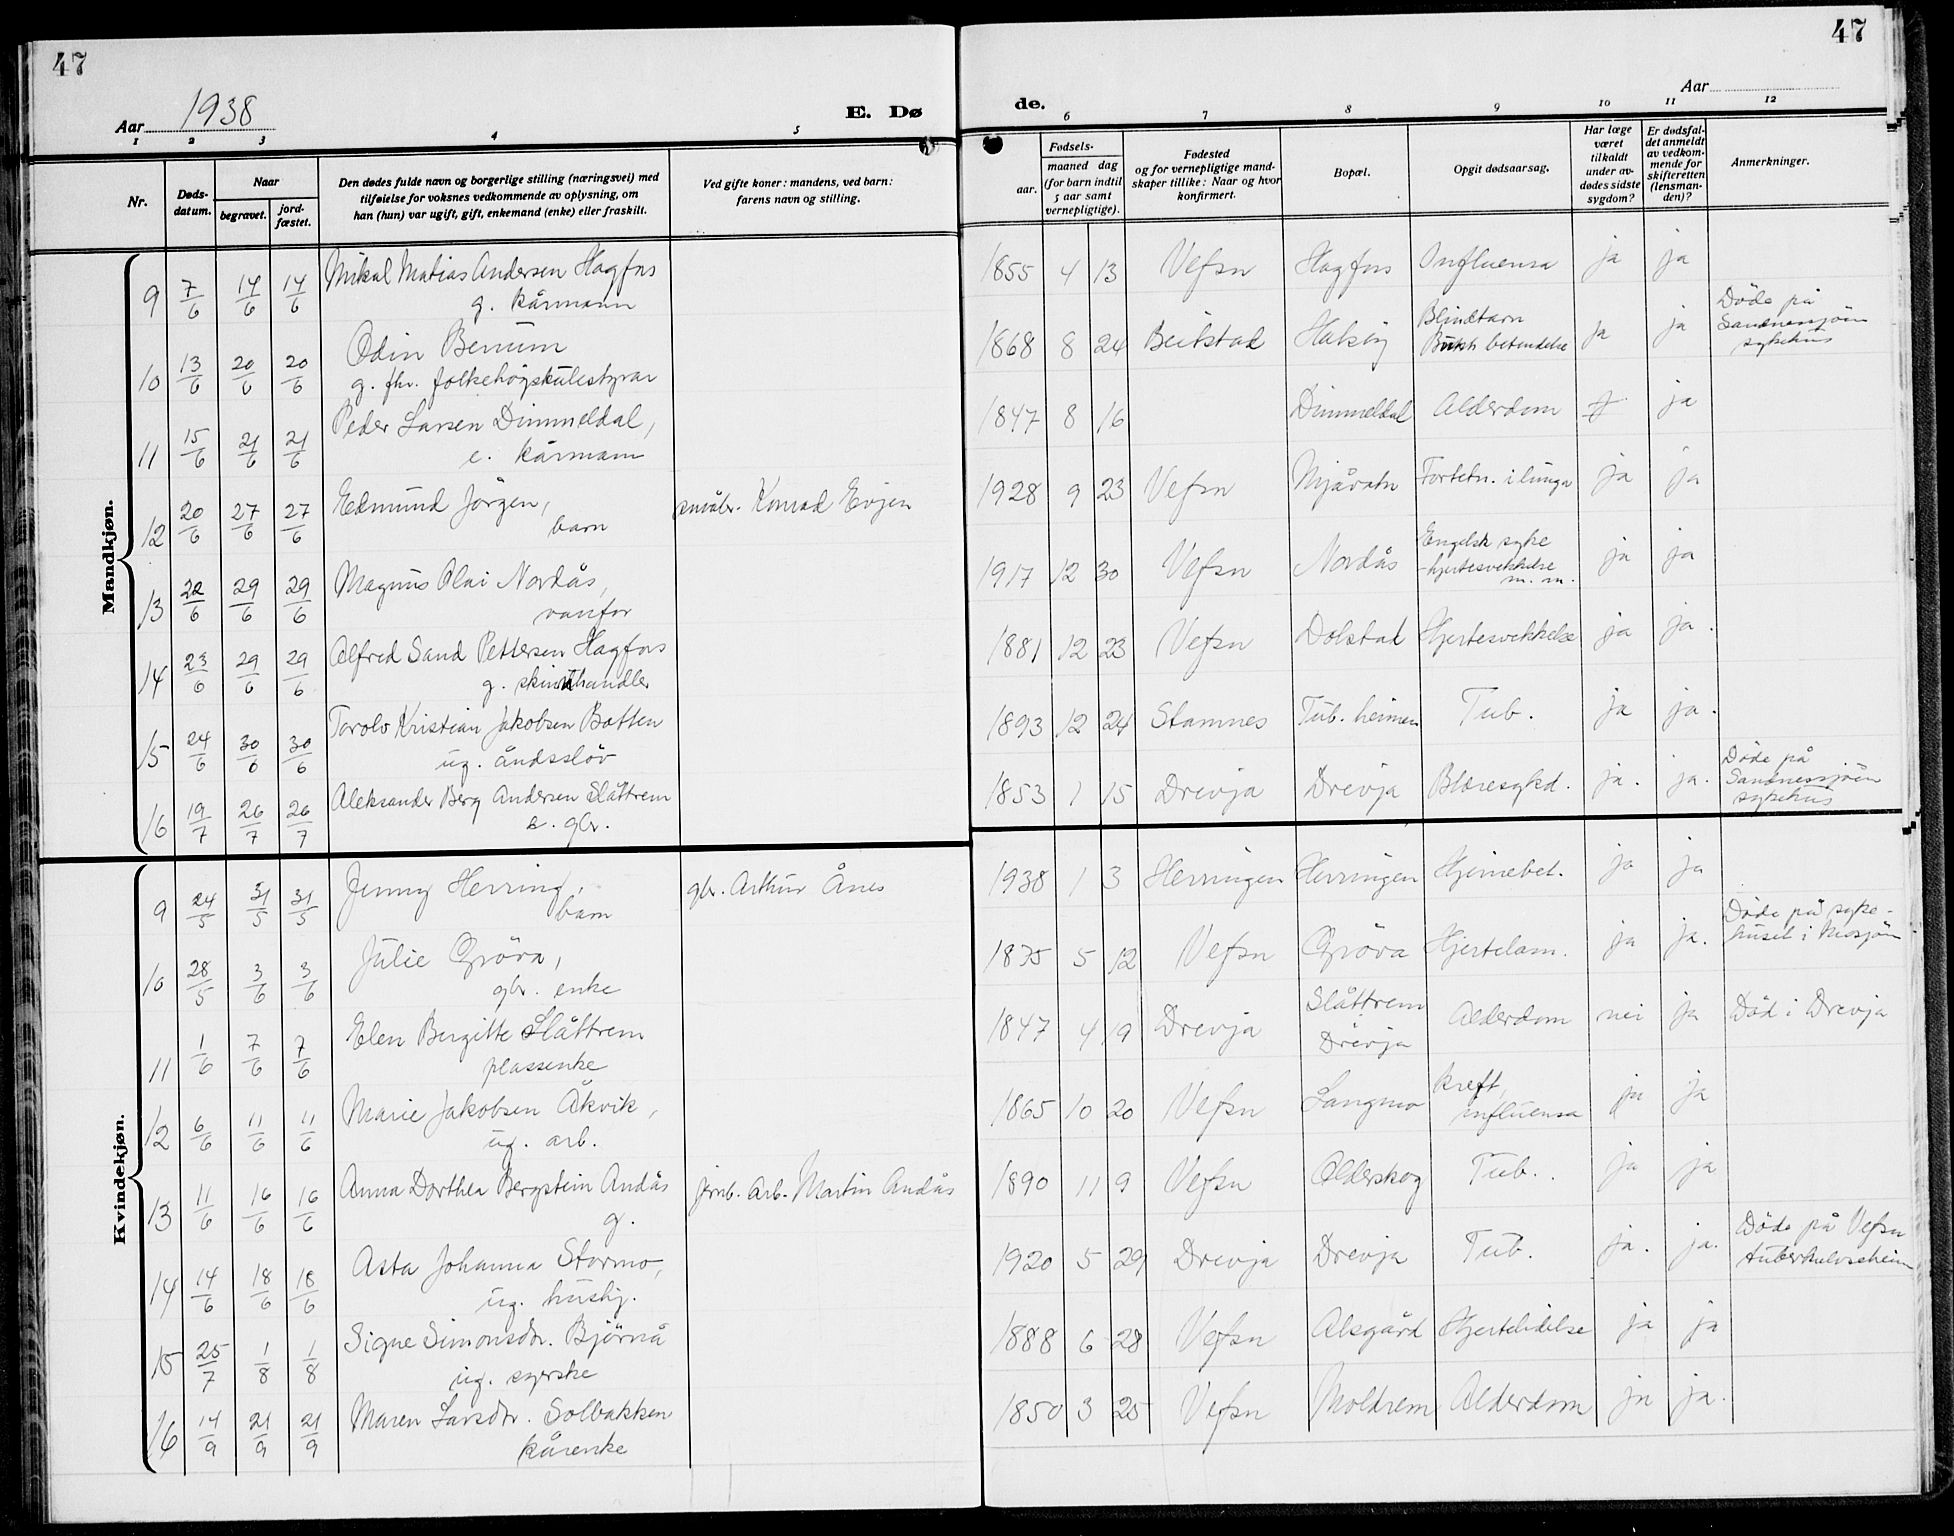 47
Aar 1938
E. Dø
1 2 3 4 5
Nr.
Døds-
datum.
Naar
begravet.
jord-
fæstet.
Den dødes fulde navn og borgerlige stilling (næringsvei) med
tilføielse for voksnes vedkommende av oplysning, om
han (hun) var ugift, gift, enkemand (enke) eller fraskilt.
Ved gifte koner: mandens, ved barn:
farens navn og stilling.
Mandkjøn.
9 7/6 14/6 14/6 Mikal Matias Andersen Hagfors
g. kårmann
10 13/6 20/6 20/6 Odin Berum
g. fhv. folkehögskulestyrar
11 15/6 21/6 21/6 Peder Larsen Dimmeldal,
e. kårmann
12 20/6 27/6 27/6 Edmund Jörgen, småbr. Konrad Evjen
barn
13 22/6 29/6 29/6 Magnus Olai Nordås,
vanfør
14 23/6 29/6 29/6 Alfred Sand Pettersen Hagfors
g. skinnhandler
15 24/6 30/6 30/6 Torolv Kristian Jakobsen Botten
ug. åndsslöv
16 19/7 26/7 26/7 Aleksander Berg Andersen Slåttrem
e. gbr.
Kvindekjøn.
9 24/5 31/5 31/5 Jenny Herring, gbr. Arthur Ånes
barn
10 28/5 3/6 3/6 Julie Gröva,
gbr. enke
11 1/6 7/6 7/6 Elen Bergitte Slåttrem
plassenke
12 6/6 11/6 11/6 Marie Jakobsen Åkvik,
ug. arb.
13 11/6 16/6 16/6 Anna Dorthea Bergstein Andås jernb. arb. Martin Andås
g.
14 14/6 18/6 18/6 Asta Johanna Stormo,
ug. hushj.
15 25/7 1/8 1/8 Signe Simonsdtr. Björnå
ug. syerske
16 14/9 21/9 21/9 Maren Larsdtr. Solbakken
kårenke
47
de.
Aar
6 7 8 9 10 11 12
Fødsels-
aar.
maaned dag
(for barn indtil
5 aar samt
vernepligtige).
Fødested
og for vernepligtige mand-
skaper tillike: Naar og hvor
konfirmert.
Bopæl.
Opgit dødsaarsag.
Har læge
været
tilkaldt
under av-
dødes sidste
sygdom?
Er dødsfal-
det anmeldt
av vedkom-
mende for
skifteretten
(lensman-
den)?
Anmerkninger.
1855 4 13 Vefsn Hagfors Influensa ja ja
1868 8 24 Beitstad Halsöy Blindtarn
Bukh. betendelse ja ja Döde på
Sandnessjöen
sykehus
1847 8 16 Dimmeldal Alderdom ja
1928 9 23 Vefsn Mjåvatn Fortetn. i lunga ja ja
1917 12 30 Vefsn Nordås Engelsk syke
-hjertesvekkelse
m. m. ja ja
1881 12 23 Vefsn Dolstad Hjertesvekkelse ja ja.
1893 12 24 Stamnes Tub. heimen Tub. ja ja.
1853 1 15 Drevja Drevja Blæresykd. ja. ja. Döde på
Sandnessjöen
sykehus
1938 1 3 Herringen Herringen Hjernebet. ja ja
1875 5 12 Vefsn Gröva Hjertelam. ja ja. Döde på syke-
huset i Mosjöen
1847 4 9 Drevja Slåttrem
Drevja Alderdom nei ja Död i Drevja
1865 10 20 Vefsn Langmo kreft,
influensa ja ja
1890 11 9 Vefsn Olderskog Tub. ja ja
1920 5 29 Drevja Drevja Tub. ja. ja. Döde på Vefsn
tuberkuloseheim
1888 6 28 Vefsn Alsgård Hjertelidelse ja ja
1850 3 25 Vefsn Moldrem Alderdom ja ja.